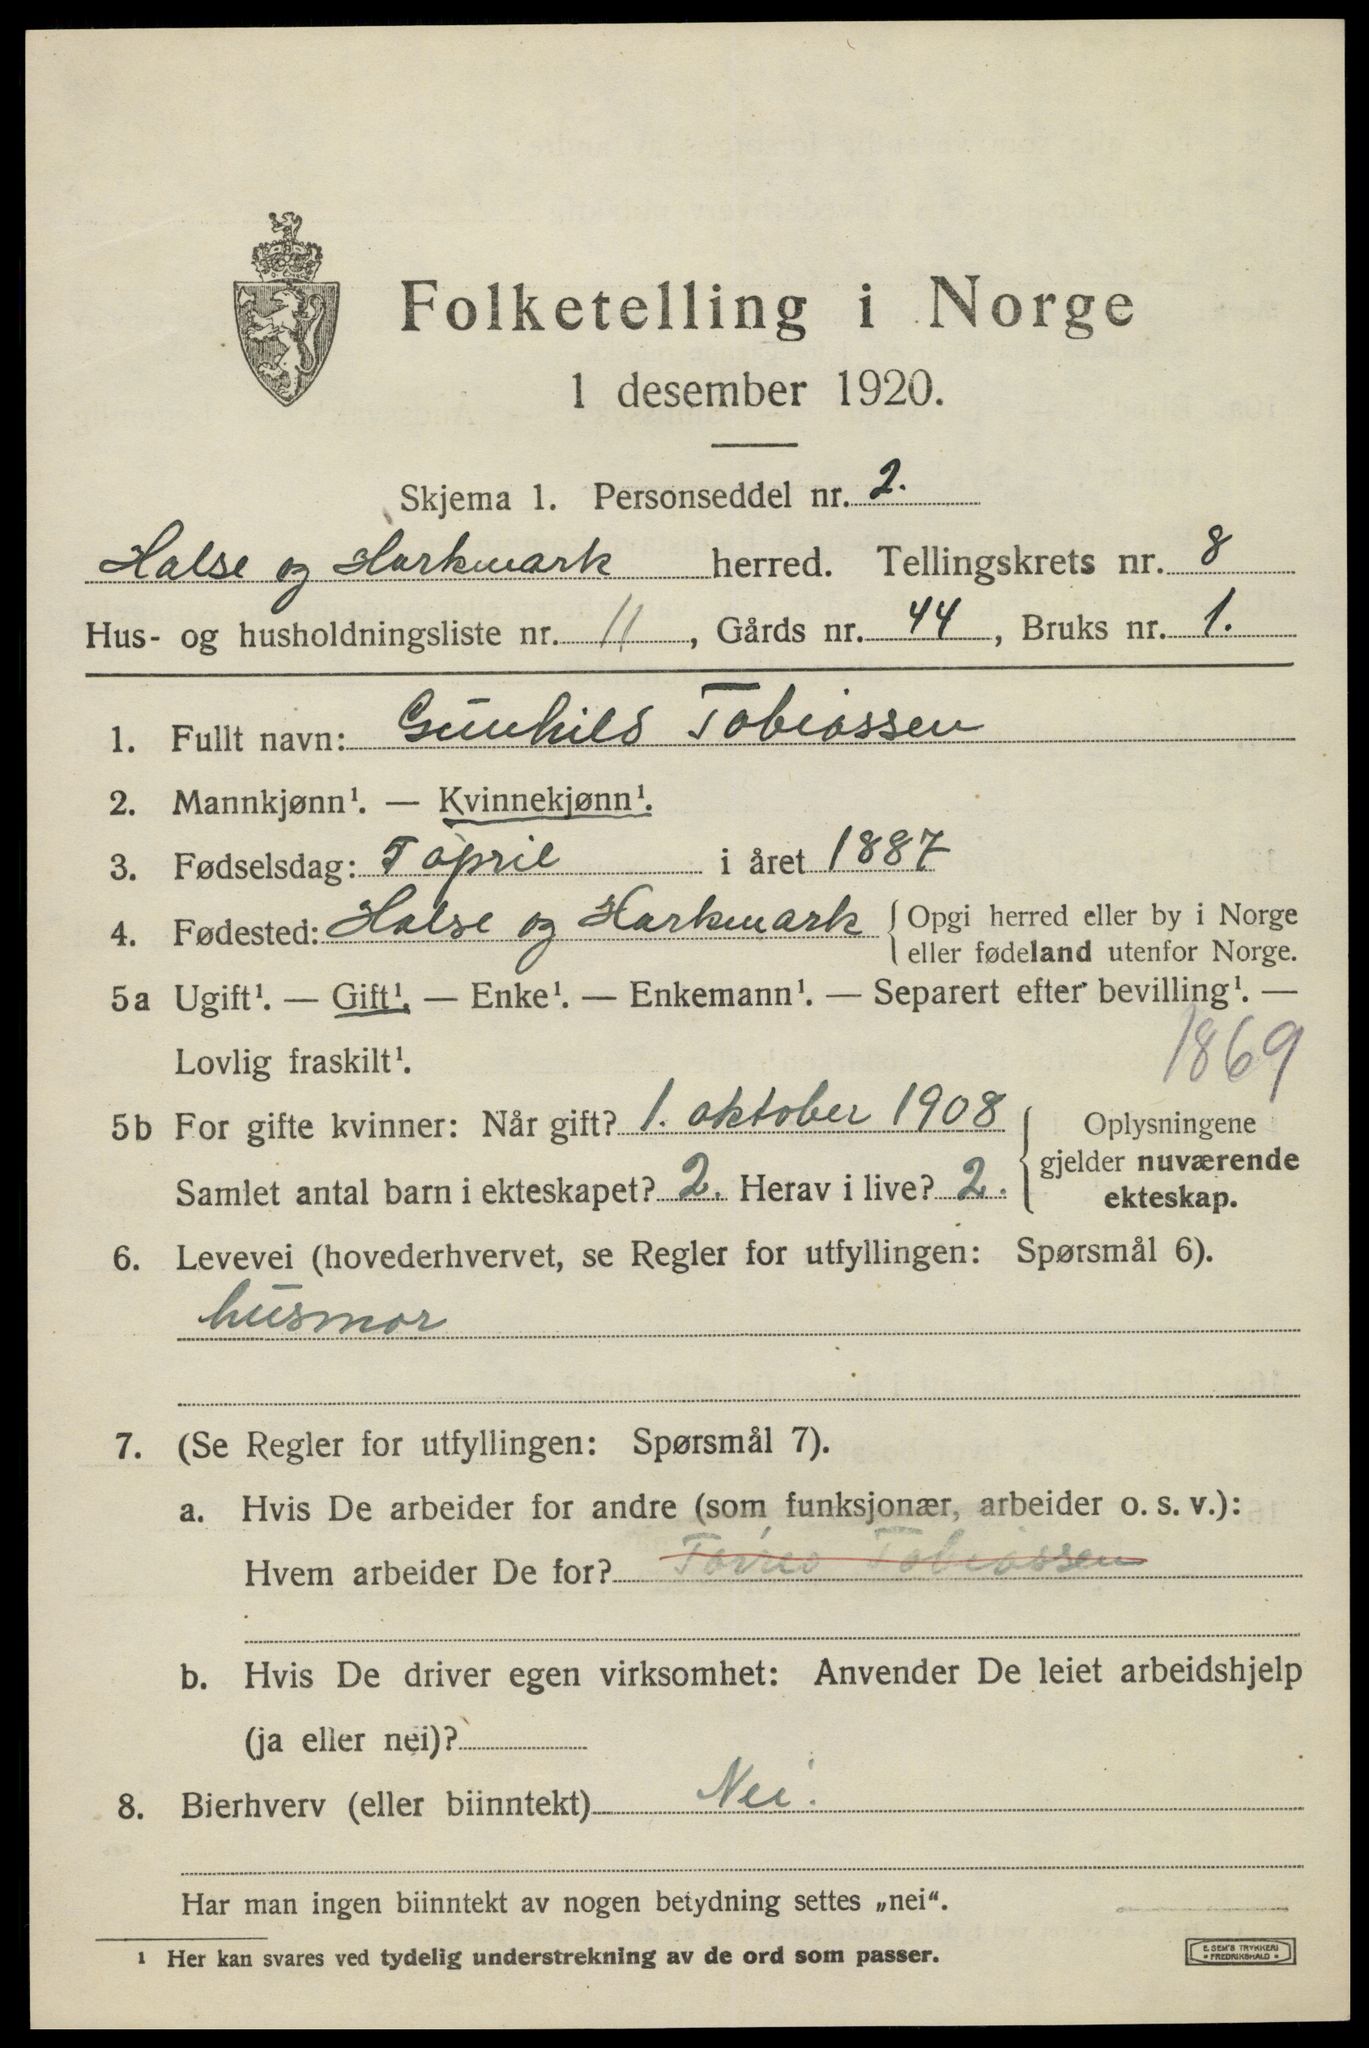 Folketelling i Norge
1 desember 1920.
Skjema 1. Personseddel nr. 2.
Halse og Harkmark herred. Tellingskrets nr. 8
Hus- og husholdningsliste nr. 11, Gårds nr. 44, Bruks nr. 1.
1. Fullt navn: Gunhild Tobiassen
2. Mannkjønn¹. — Kvinnekjønn¹.
3. Fødselsdag: april i året 1887
4. Fødested: Halse og Harkmark {Opgi herred eller by i Norge
eller fødeland utenfor Norge.
5a Ugift¹. — Gift¹. — Enke¹. — Enkemann¹. — Separert efter bevilling¹. —
Lovlig fraskilt¹. 1869
5b For gifte kvinner: Når gift? 1. oktober 1908 Oplysningene
gjelder nuværende
Samlet antal barn i ekteskapet? 2. Herav i live? 2. ekteskap.
6. Levevei (hovederhvervet, se Regler for utfyllingen: Spørsmål 6).
husmor
7. (Se Regler for utfyllingen: Spørsmål 7).
a. Hvis De arbeider for andre (som funksjonær, arbeider o. s. v.):
Hvem arbeider De for? Tobiassen
b. Hvis De driver egen virksomhet: Anvender De leiet arbeidshjelp
(ja eller nei)?
8. Bierhverv (eller biinntekt) Nei.
Har man ingen biinntekt av nogen betydning settes „nei“.
¹ Her kan svares ved tydelig understrekning av de ord som passer.
E. SEM'S TRYKKERI
FREDRIKSHALD